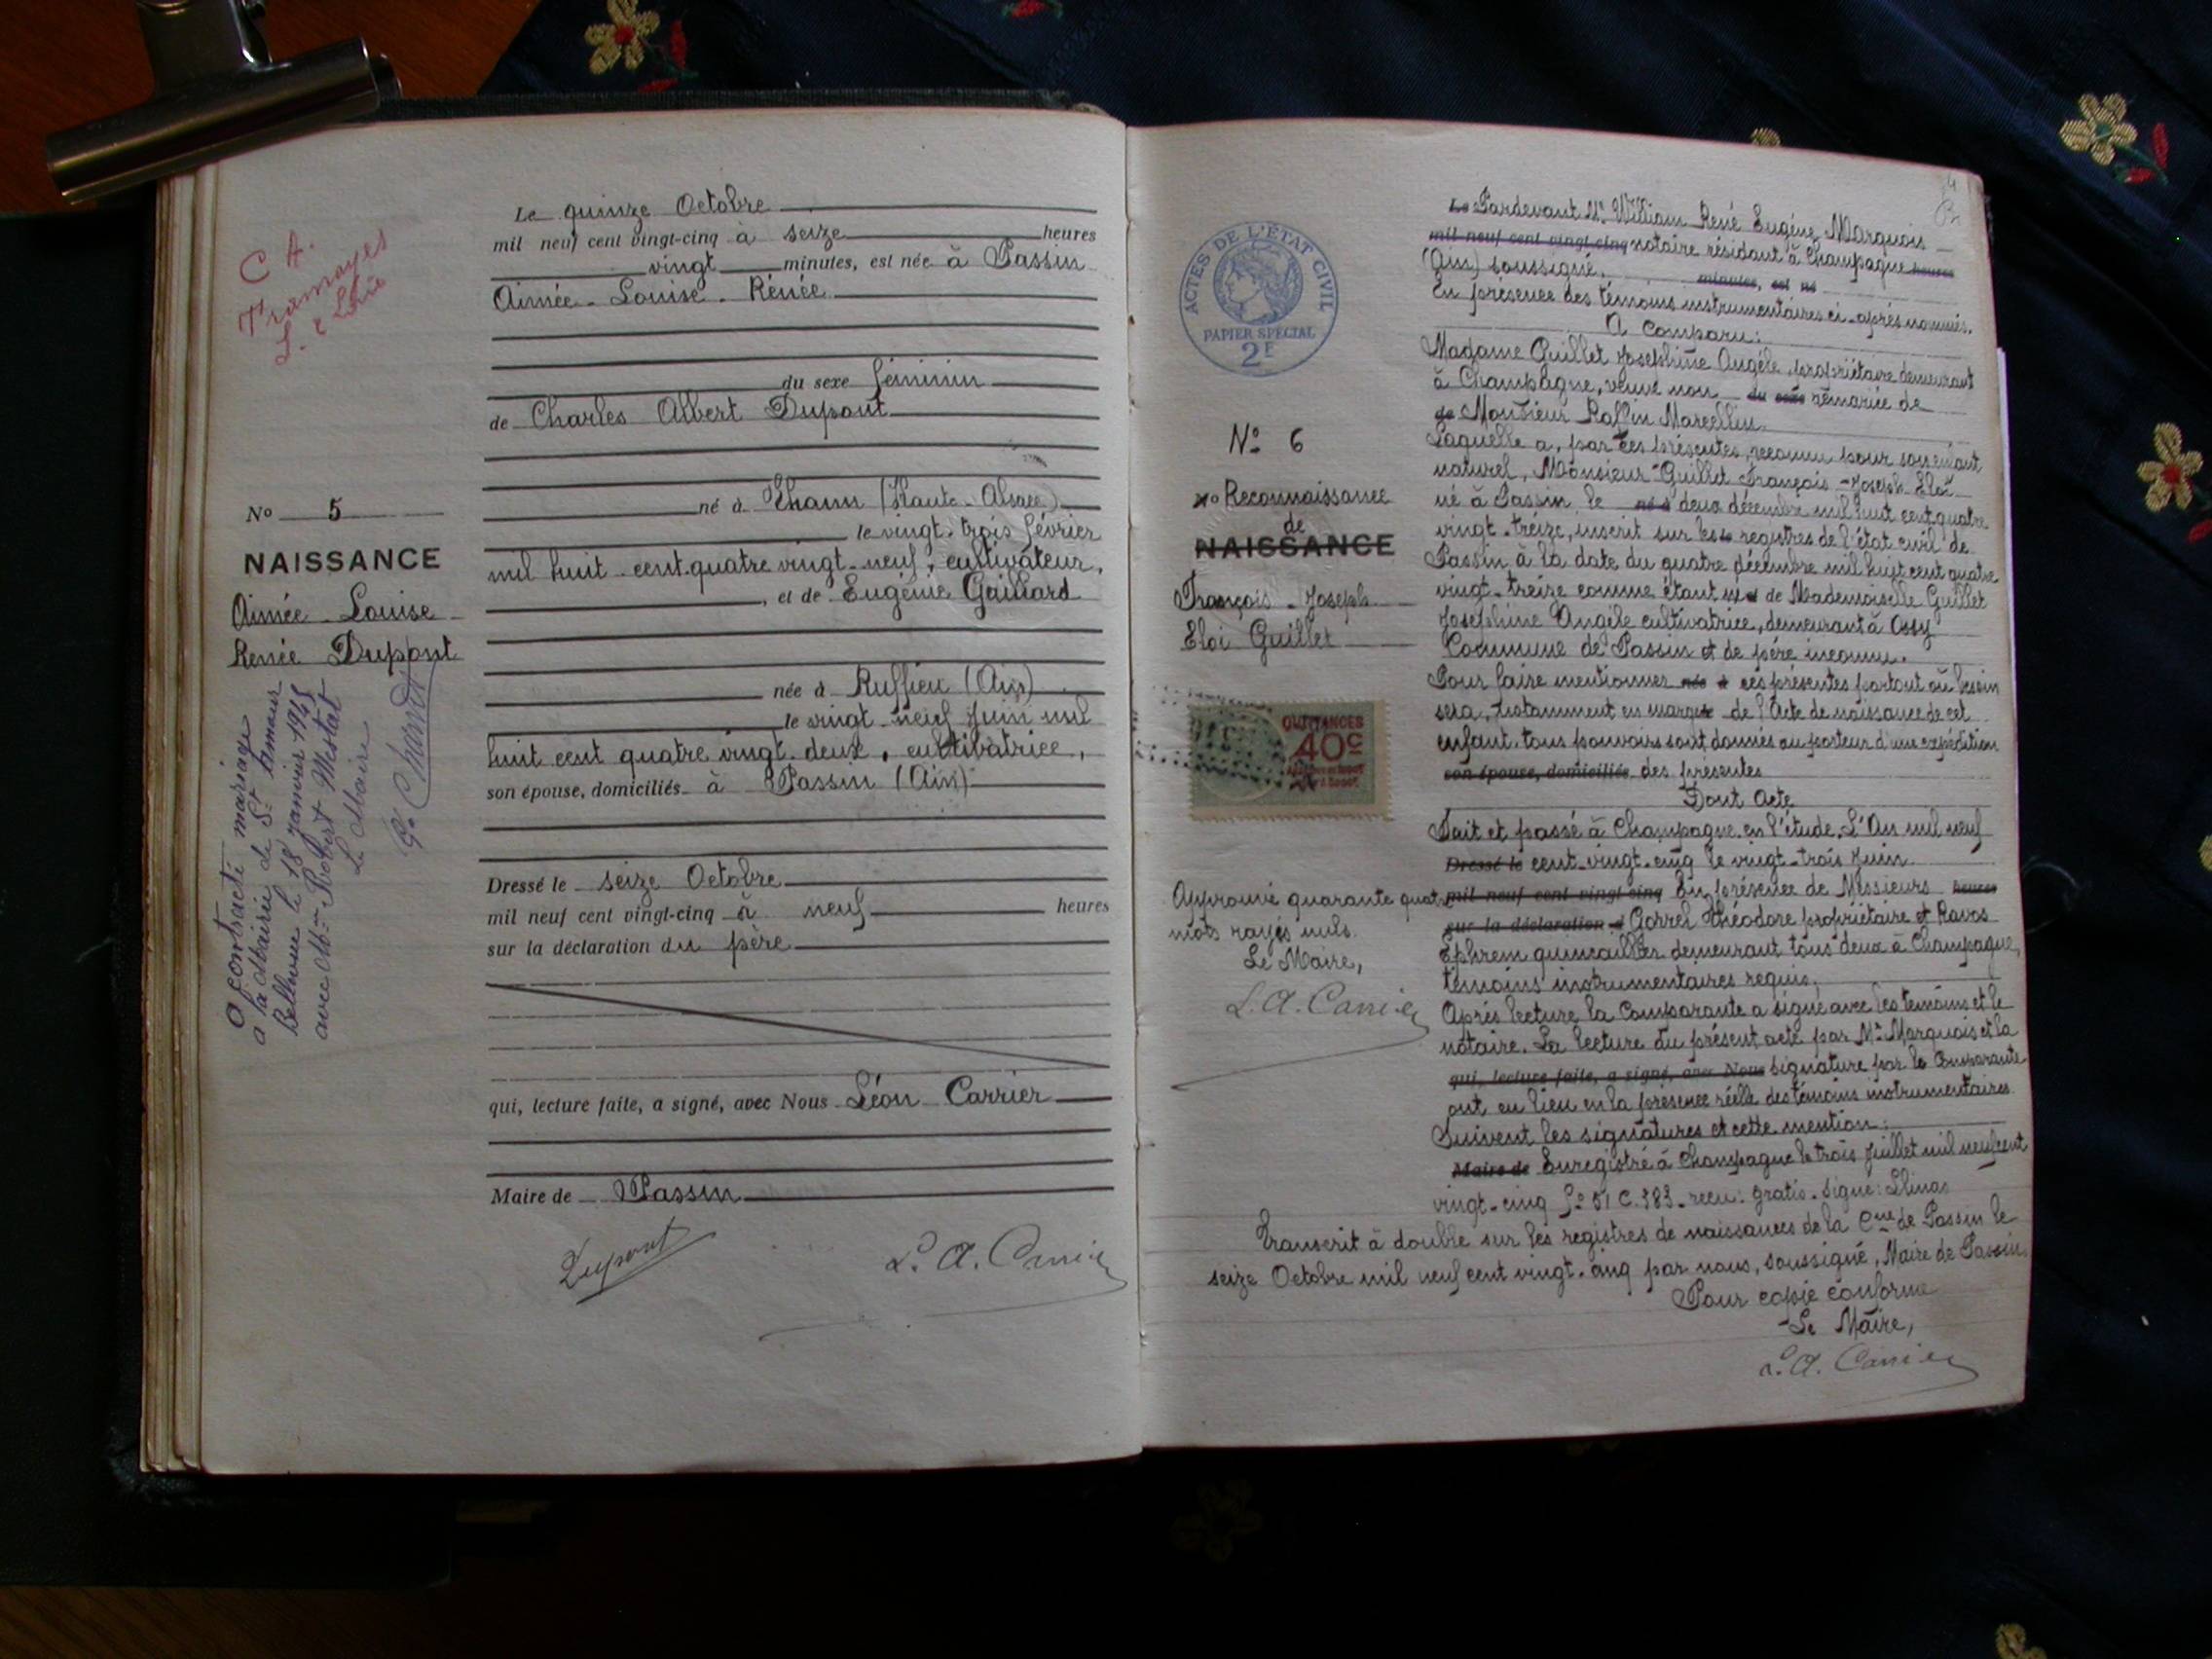 C A.
Tramayes
S. & Loire
Le quinze Octobre
mil neuf cent vingt-cinq à seize heures
vingt minutes, est née à Passin
Aimée - Louise - Rénée
du sexe féminin
de Charles Albert Dupont
né à Thann (Haute-Alsace)
le vingt-trois février
mil huit-cent-quatre vingt-neuf, cultivateur,
, et de Eugénie Gaillard
née à Ruffieu (Ain)
le vingt-neuf Juin mil
huit cent quatre vingt-deux, cultivatrice,
son épouse, domiciliés à Passin (Ain)
Dressé le seize Octobre
mil neuf cent vingt-cinq à neuf heures
sur la déclaration du père
qui, lecture faite, a signé, avec Nous Léon Carrier
Maire de Passin
Dupont
L. A. Carrier
No 5
NAISSANCE
Aimée - Louise
Renée Dupont
a contracté mariage
à la Mairie de St Amour
Bellevue le 18 janvier 1945
avec Mr Robert Mestat
Le Maire
ACTES DE L'ÉTAT CIVIL
PAPIER SPÉCIAL
2F
No 6
No Reconnaissance
de
NAISSANCE
François - Joseph
Eloi Guillet
QUITTANCES
40c
Approuvé quarante quatre
mots rayés nuls.
Le Maire,
L. A. Carrier
Le Pardevant Me William René Eugène Marquois
mil neuf cent vingt-cinq notaire résidant à Champagne heures
(Ain) soussigné. minutes, est né
En présence des témoins instrumentaires ci-après nommés.
A Comparu:
Madame Guillet Joséphine Angèle, propriétaire demeurant
à Champagne, veuve non du sexe rémariée de
de Monsieur Raffin Marcellin.
Laquelle a, par ces présentes, reconnu pour son enfant
naturel, Monsieur Guillet François-Joseph Eloi
né à Passin, le né à deux décembre mil huit cent quatre
vingt-treize, inscrit sur les le registres de l'état civil de
Passin à la date du quatre décembre mil huit cent quatre
vingt-treize comme étant de Mademoiselle Guillet
Joséphine Angèle cultivatrice, demeurant à Ossy
Commune de Passin et de père inconnu.
Pour faire mentionner née à ces présentes partout où besoin
sera, notamment en marge le de l'Acte de naissance de cet
enfant, tous pouvoirs sont donnés au porteur d'une expédition
son épouse, domiciliés des présentes
Dont Acte
Fait et passé à Champagne, en l'étude, L'An mil neuf
Dressé le cent-vingt-cinq le vingt-trois Juin
mil neuf cent vingt-cinq En présence de Messieurs heures
sur la déclaration d Gorrel Théodore propriétaire et Ravos
Ephrem quincailler demeurant tous deux à Champagne,
témoins instrumentaires requis.
Après lecture la Comparante a signé avec les témoins et le
notaire. La lecture du présent acte par Me Marquois et la
qui, lecture faite, a signé, avec Nous signature par la Comparante
ont eu lieu en la présence réelle des témoins instrumentaires
Suivent les signatures et cette mention:
Maire de Enregistré à Champagne le trois Juillet mil neuf cent
vingt-cinq Fo 51 C. 383 - reçu: gratis. Signé:
Transcrit à double sur les registres de naissances de la Cne de Passin le
seize Octobre mil neuf cent vingt-cinq par nous, soussigné, Maire de Passin.
Pour copie conforme
Le Maire,
L. A. Carrier